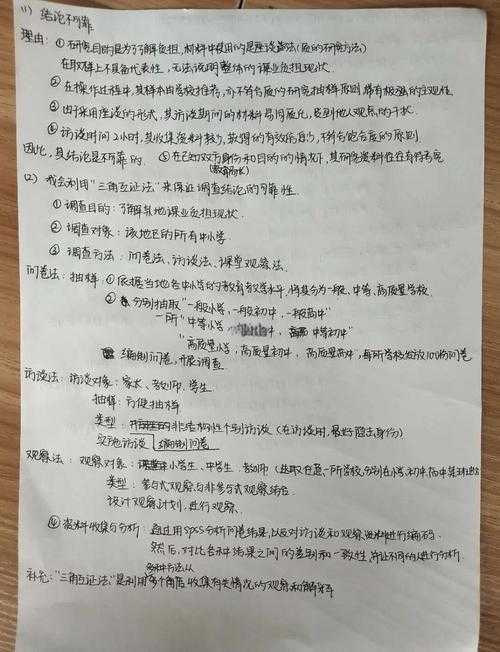 (1) 结论不可靠
理由：①研究目的是为了了解负担，材料中使用的是座谈法(质的研究方法)
在取样上不具备代表性，无法说明整体的课业负担现状.
②在操作过程中，其样本由学校推荐，亦不符合质的研究抽样原则，带有极强的主观性.
③由于采用座谈的形式，其访谈期间的材料易同质化，受到他人观点的干扰.
④访谈时间2小时，其收集资料较少，获得的有效信息少，不符合饱合度的原则
因此，其结论是不可靠的. ⑤在已知双方身份和目的的情况下，其研究资料往往有待考究
(2) 我会利用"三角互证法"来保证调查结论的可靠性.
①调查目的：了解某地课业负担现状.
②调查对象：该地区的所有中小学.
③调查方法：问卷法、访谈法、课堂观察法.
问卷法：抽样：①依据当地各中小学的教育教学水平，将其分为一般、中等、高质量学校.
②分别抽取"一般小学，一般初中，一般高中"
一所"中等小学，中等初中"
"高质量小学，高质量初中，高质量高中"，每所学校发放100份问卷
编制问卷，开展调查.
访谈法：访谈对象：家长、教师、学生
抽样：方便抽样
类型：非结构性个别访谈（在访谈用，最好隐去身份）
实施访谈 编制问卷
观察法：观察对象：小学生、中学生、教师（选取任意一所学校，分别在小学、初中、高中
类型：参与式观察与非参与式观察结合.
设计观察计划，进行观察.
④资料收集与分析：通过用SPSS分析问卷结果，以及对访谈和观察资料进行编码.
然后，对比各种结果之间的差别和一致性，并让不同的人进行分析.
多种方法从
补充："三角互证法"是利用多个角度收集有关情况的观察和解释